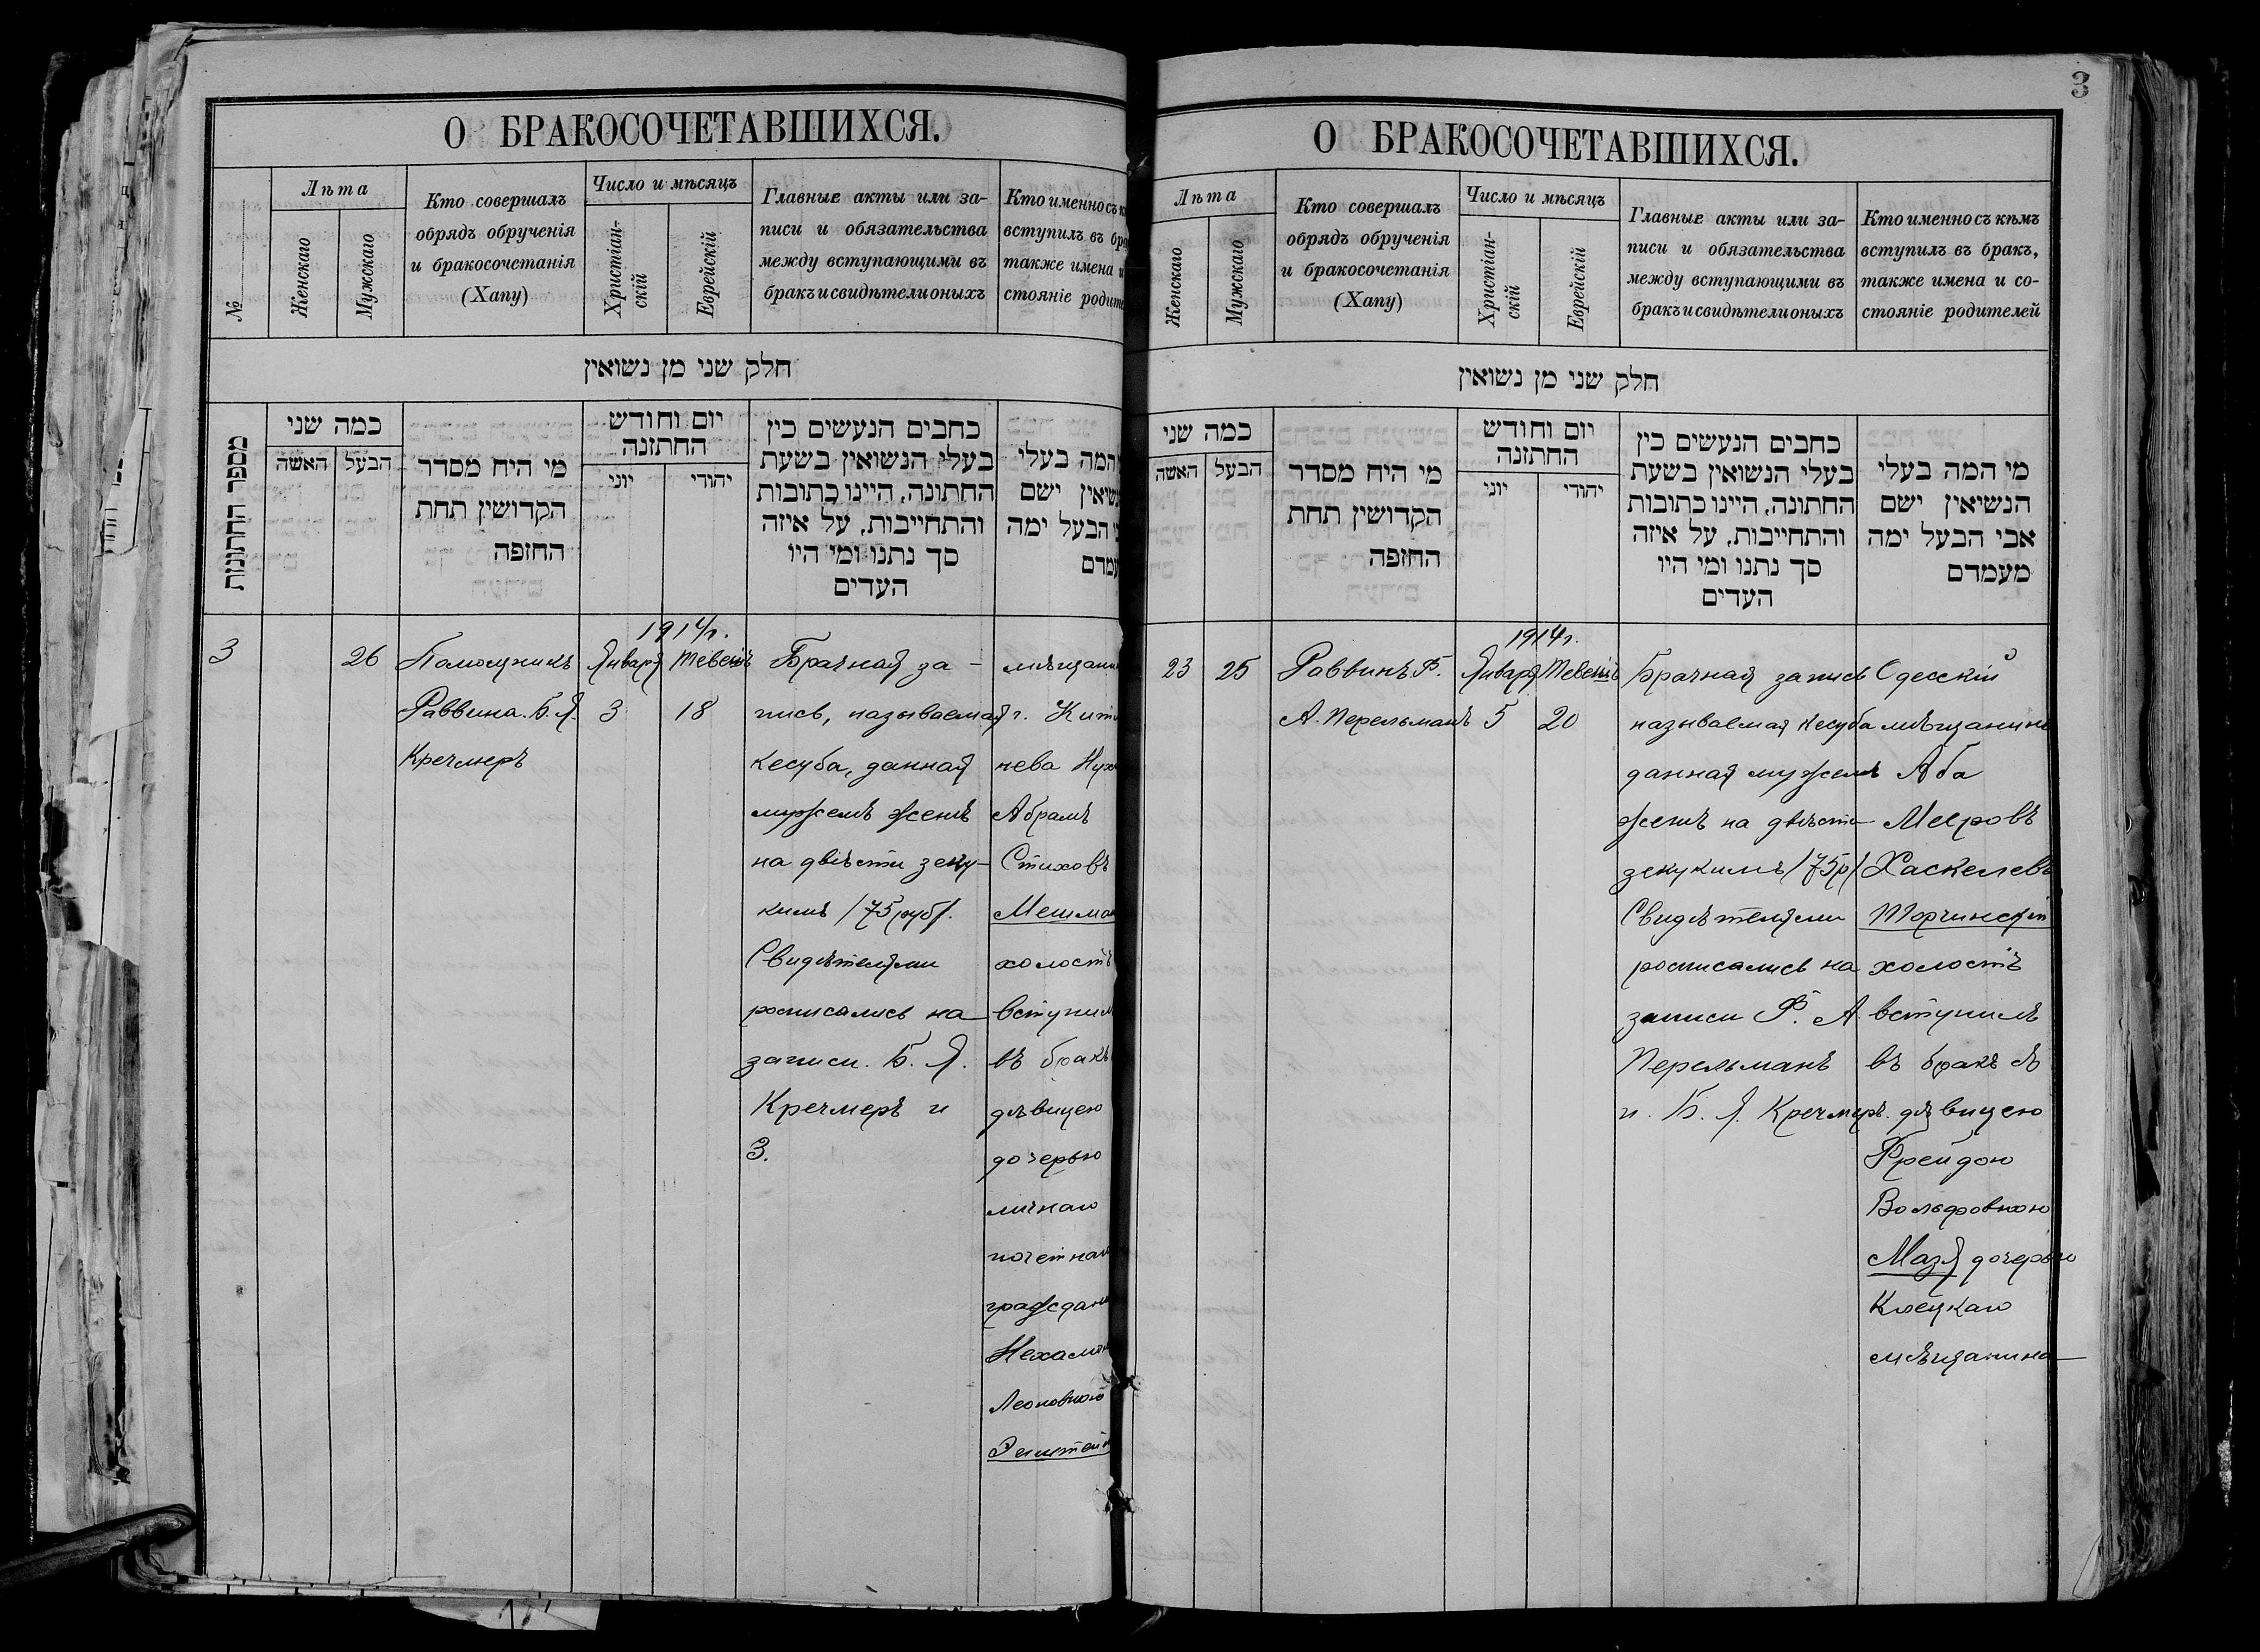 3
О БРАКОСОЧЕТАВШИХСЯ.
№
Лѣта
Женскаго
Мужскаго
Кто совершалъ
обрядъ обрученія
и бракосочетанія
(Хапу)
Число и мѣсяцъ
Христіан-
скій
Еврейскій
Главные акты или за-
писи и обязательства
между вступающими въ
бракъ и свидѣтели оныхъ
Кто именно съ к
вступилъ въ бра
также имена и
стояніе родите
חלק שני מן נשואין
מספר החתונות
כמה שני
האשה
הבעל
מי היח מסדר
הקדושין תחת
החזפה
יום וחודש
החתזנה
יוני
יהודי
כחבים הנעשים כין
בעלי הנשואין בשעת
החתונה, היינו כתובות
והתחייבות, על איזה
סך נתנו ומי היו
העדים
המה בעלי
שיאין ישם
הבעל ימה
עמדם
3
26
Помощникъ
Раввина. Б. Я.
Кречмеръ
1914г.
Января
3
Тевешъ
18
Брачная за-
пись, называемая
кесуба, данная
мужемъ женѣ
на двѣсти зеку-
кимъ /75 руб/.
Свидѣтелями
росписались на
записи. Б. Я.
Кречмеръ и
З.
мѣщани
г. Киши
нева Нух
Абрамъ
Стиховъ
Мешман
холостъ
вступил
въ бракъ
дѣвицею
дочерью
личнаго
почетнаг
граждани
Нехамо
Леоновною
О БРАКОСОЧЕТАВШИХСЯ.
Лѣта
Женскаго
Мужскаго
Кто совершалъ
обрядъ обрученія
и бракосочетанія
(Хапу)
Число и мѣсяцъ
Христіан-
скій
Еврейскій
Главные акты или за-
писи и обязательства
между вступающими въ
бракъ и свидѣтели оныхъ
Кто именно съ кѣмъ
вступилъ въ бракъ,
также имена и со-
стояніе родителей
חלק שני מן נשואין
כמה שני
האשה
הבעל
מי היח מסדר
הקדושין תחת
החזפה
יום וחודש
החתזנה
יוני
יהודי
כחבים הנעשים כין
בעלי הנשואין בשעת
החתונה, היינו כתובות
והתחייבות, על איזה
סך נתנו ומי היו
העדים
מי המה בעלי
הנשיאין ישם
אבי הבעל ימה
מעמדם
23
25
Раввинъ. Ф.
А. Перельманъ
1914г.
Января
5
Тевешъ
20
Брачная запись
называемая кесуба
данная мужемъ
женѣ на двѣсти
зекукимъ /75р/
Свидѣтелями
росписались на
записи Ф. А.
Перельманъ
и. Б. Я. Кречмеръ.
Одесскій
мѣщанинъ
Аба
Мееровъ
Хаскелевъ
Торчинскій
холостъ
вступилъ
въ бракъ съ
дѣвицею
Фрейдою
Вольфовною
Мазя дочерью
Клецкаго
мѣщанина